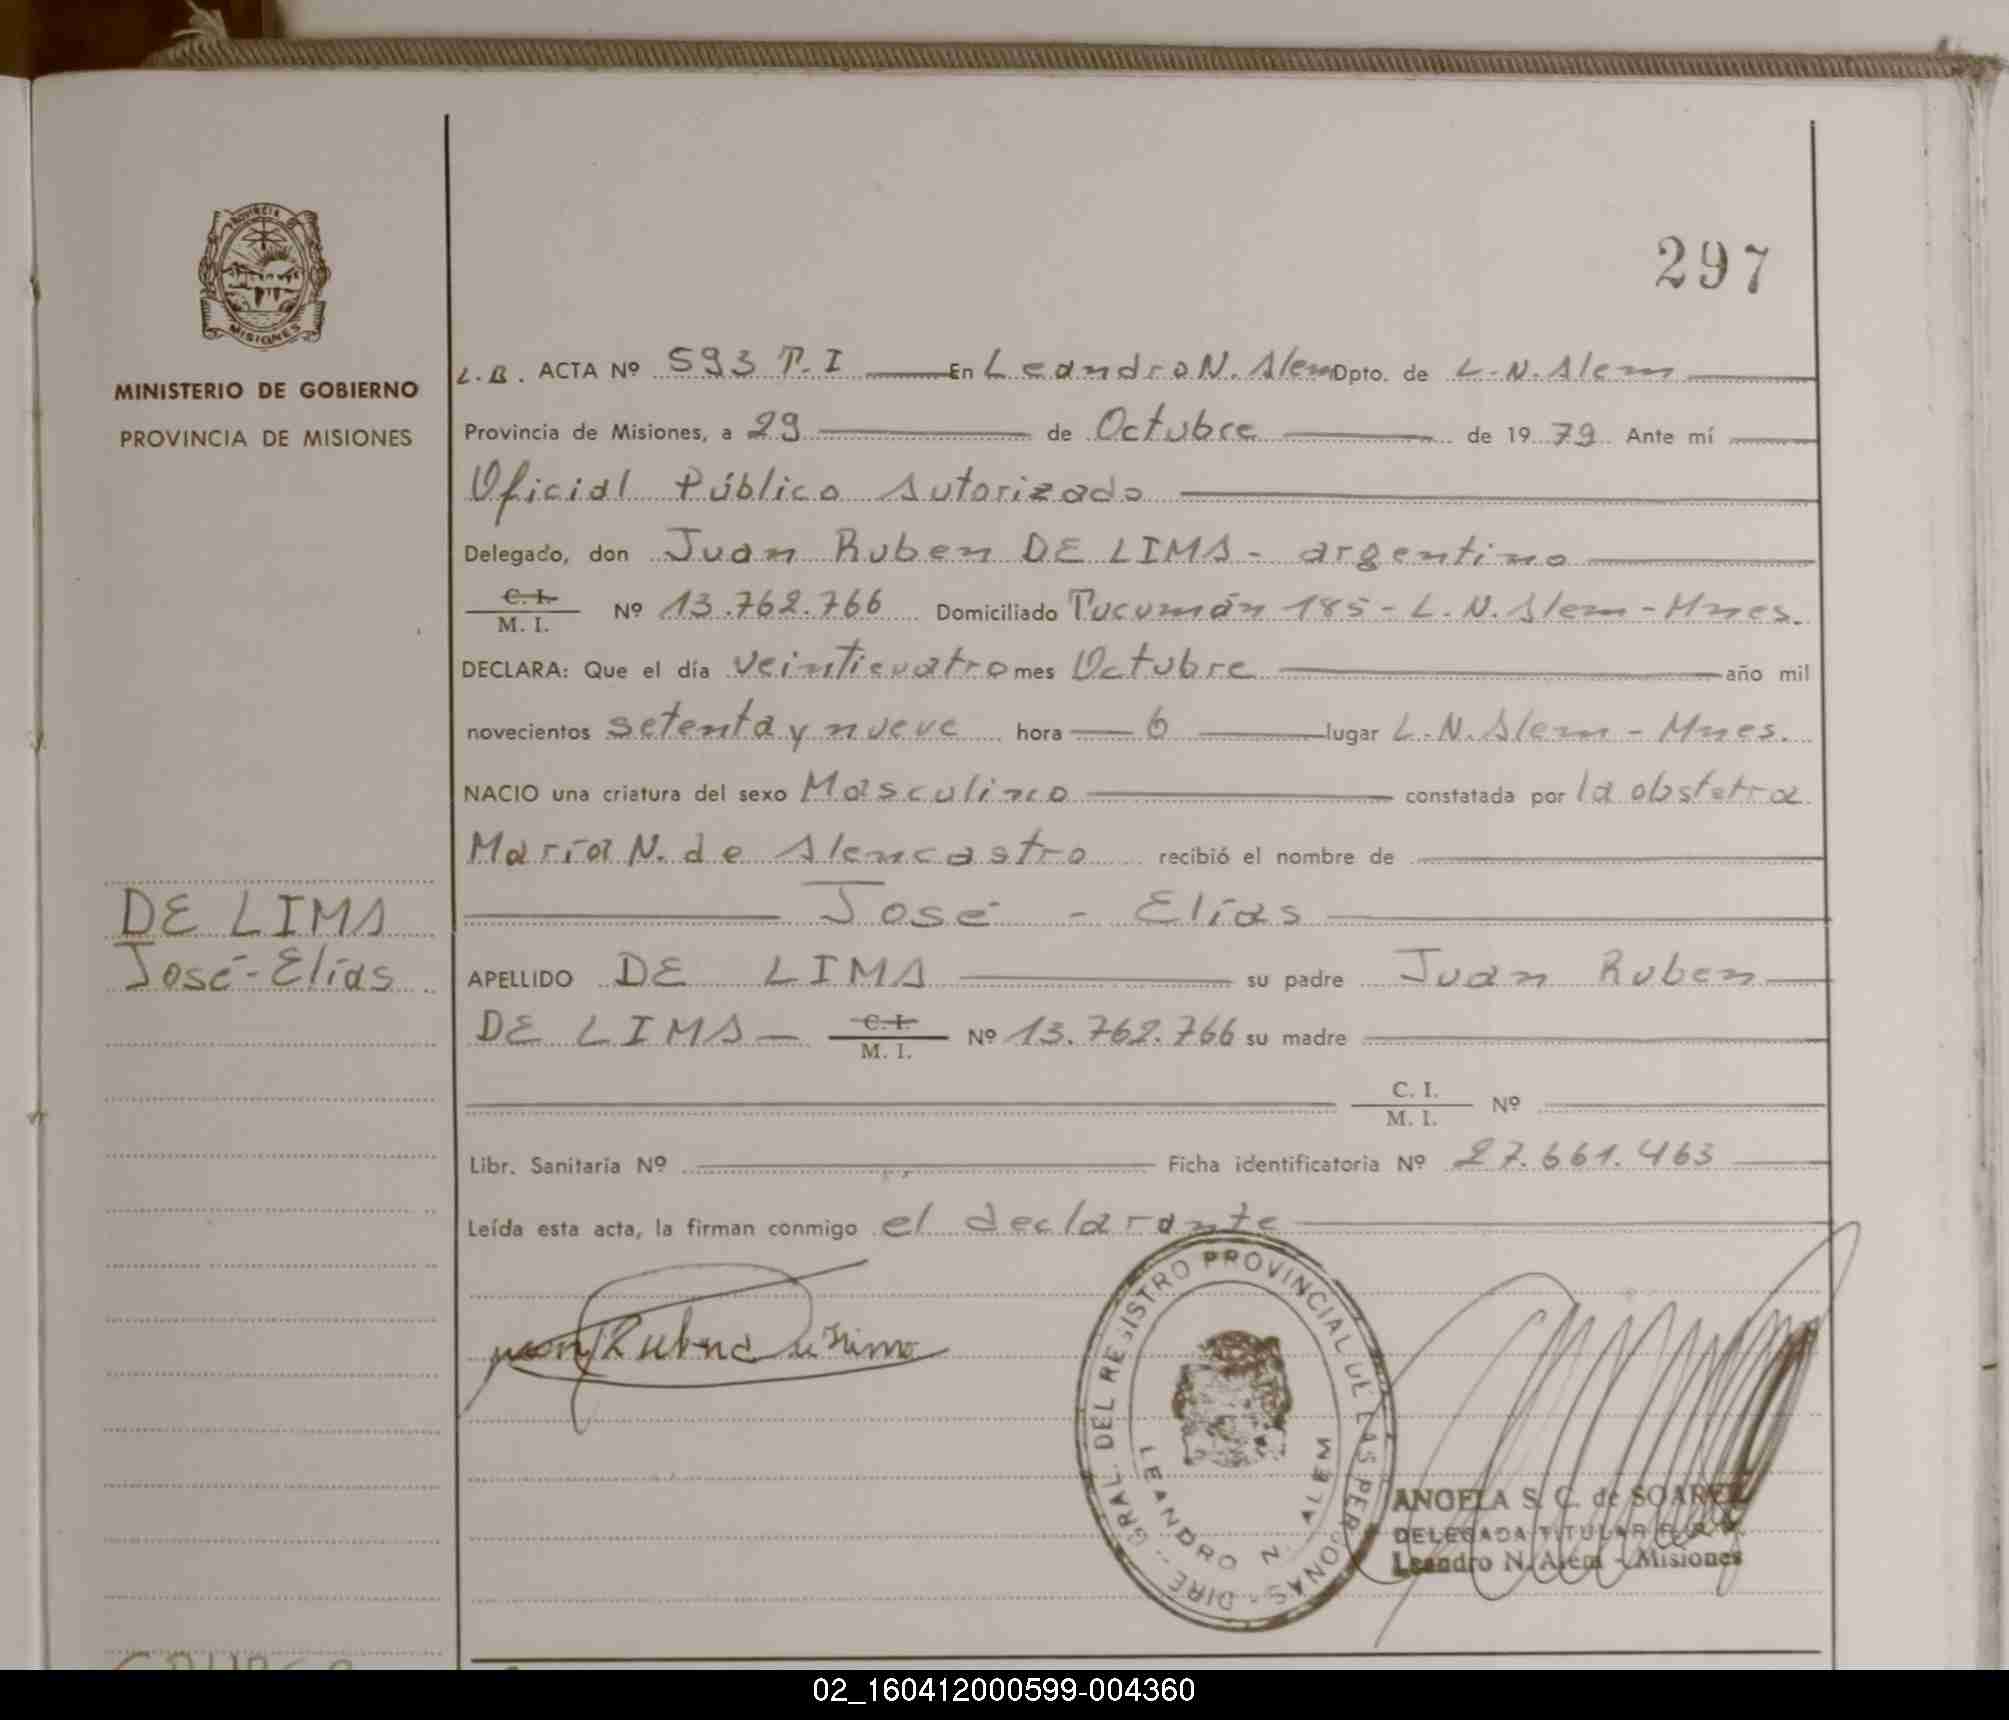 PROVINCIA DE
MISIONES
MINISTERIO DE GOBIERNO
PROVINCIA DE MISIONES
297
L.B. ACTA Nº 593 T. I En Leandro N. Alem Dpto. de L. N. Alem
Provincia de Misiones, a 29 de Octubre de 1979 Ante mí
Oficial Público Autorizado
Delegado, don Juan Ruben DE LIMA - argentino
C. I. / M. I. Nº 13.762.766 Domiciliado Tucumán 185 - L. N. Alem - Mnes.
DECLARA: Que el día veinticuatro mes Octubre año mil
novecientos setenta y nueve hora 6 lugar L. N. Alem - Mnes.
NACIO una criatura del sexo Masculino constatada por la obstetra
María N. de Alencastro recibió el nombre de
José - Elías
APELLIDO DE LIMA su padre Juan Ruben
DE LIMA - C. I. / M. I. Nº 13.762.766 su madre
C. I. / M. I. Nº
Libr. Sanitaria Nº Ficha identificatoria Nº 27.661.463
Leída esta acta, la firman conmigo el declarante
DE LIMA
José - Elías
Juan Ruben de Lima
DIRE GRAL. DEL REGISTRO PROVINCIAL DE LAS PERSONAS
LEANDRO N. ALEM
ANGELA S. C. de SOAREZ
DELEGADA TITULAR
Leandro N. Alem - Misiones
02_160412000599-004360